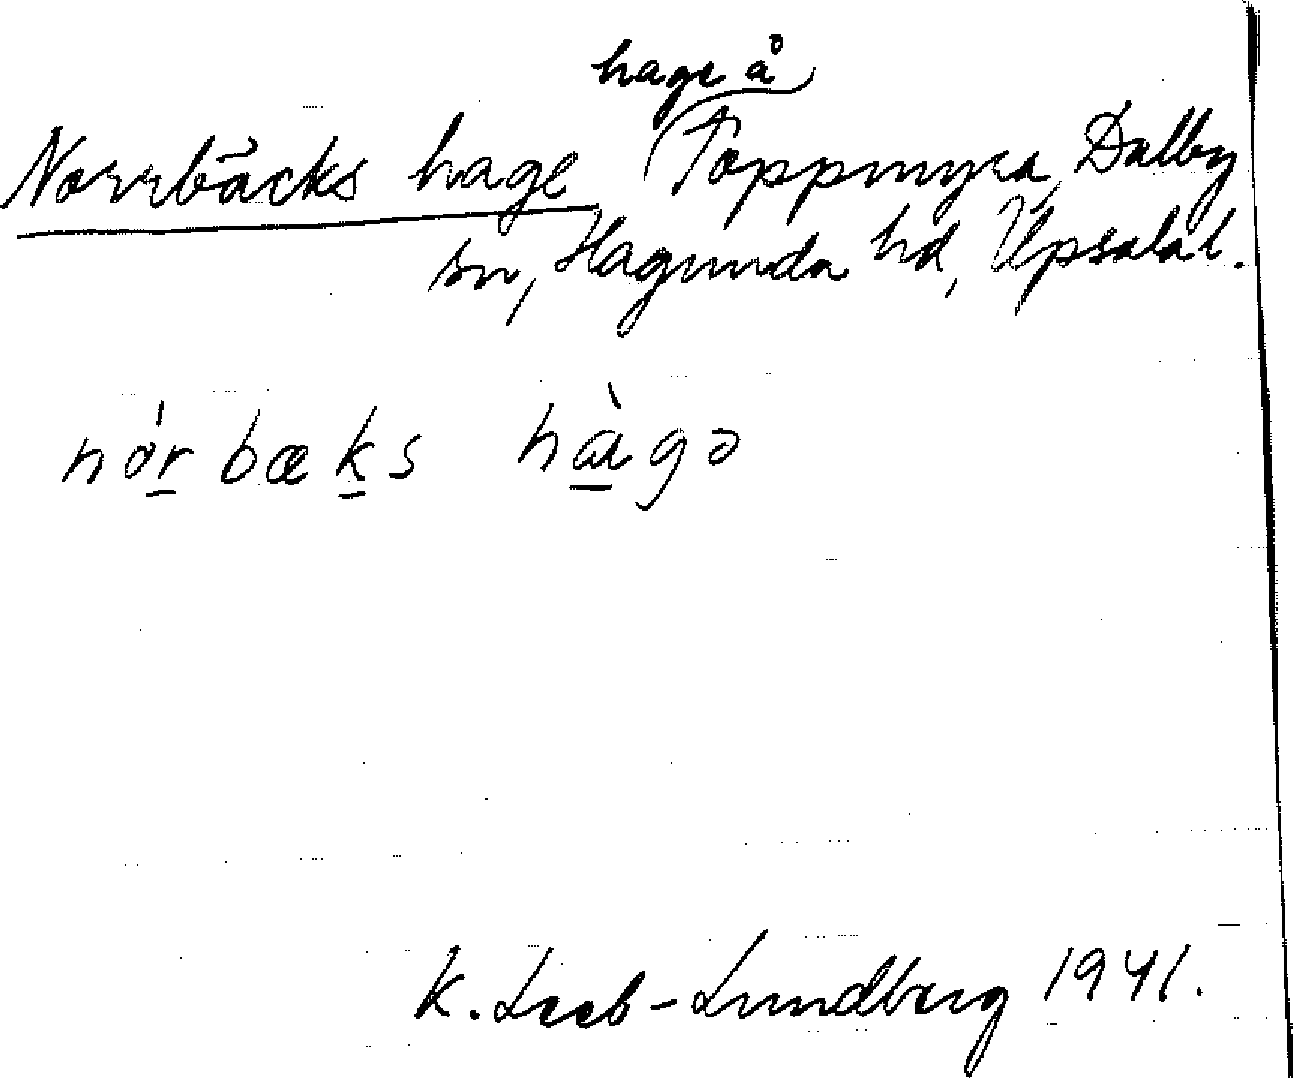 hage å
Norrbäcks hage Toppmyra, Dalby
sn, Hagunda hd, Upsalal.
nórbæks hàgə
K. Leeb-Lundberg 1941.